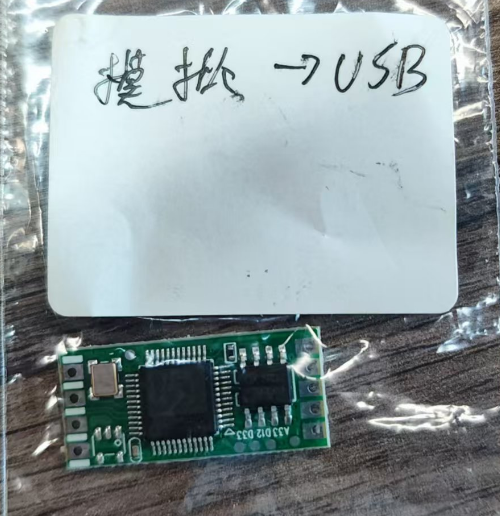 模拟 →USB
A33 D12 D33